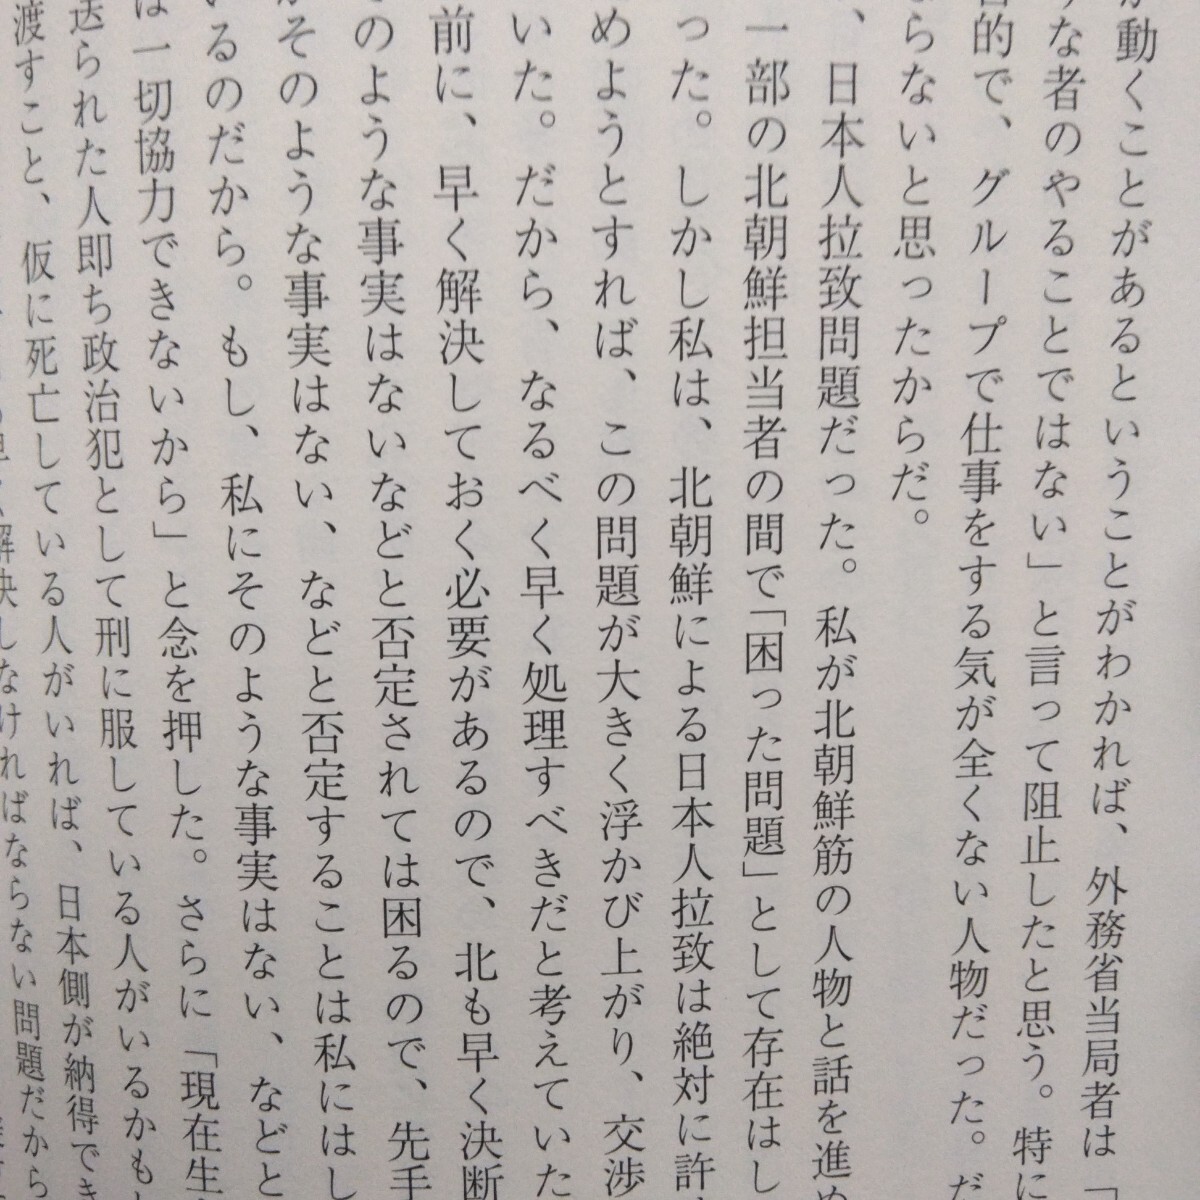 が動くことがあるということがわかれば、外務省当局者は「
な者のやることではない」と言って阻止したと思う。特に
的で、グループで仕事をする気が全くない人物だった。だ
らないと思ったからだ。
、日本人拉致問題だった。私が北朝鮮筋の人物と話を進め
一部の北朝鮮担当者の間で「困った問題」として存在はし
った。しかし私は、北朝鮮による日本人拉致は絶対に許
めようとすれば、この問題が大きく浮かび上がり、交渉
いた。だから、なるべく早く処理すべきだと考えていた
前に、早く解決しておく必要があるので、北も早く決断
のような事実はないなどと否定されては困るので、先手
がそのような事実はない、などと否定することは私にはし
いるのだから。もし、私にそのような事実はない、などと
は一切協力できないから」と念を押した。さらに「現在生
送られた人即ち政治犯として刑に服している人がいるかも
渡すこと、仮に死亡している人がいれば、日本側が納得でき
解決しなければならない問題だから